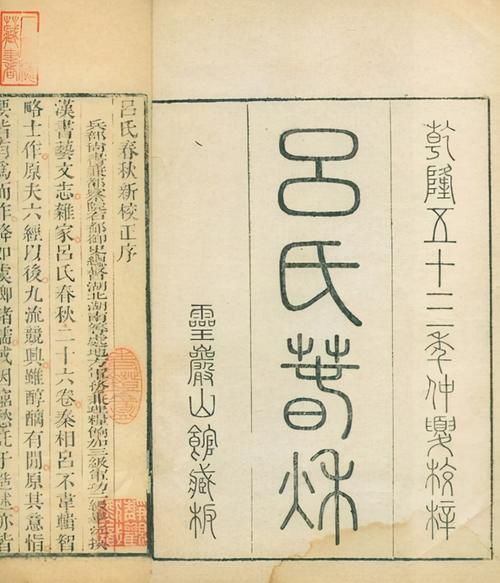 乾隆五十三年仲夏校梓
呂氏萅秌
靈巖山館藏板
呂氏春秋新校正序
兵部尚書兼都察院右都御史總督湖北湖南等處地方軍務兼理糧餉加三級軍功
漢書藝文志雜家呂氏春秋二十六卷秦相呂不韋輯智
略士作原夫六經以後九流競興雖醇醨有閒原其意恉
要皆有爲而作降如虞卿諸儒或因窮愁託于造述亦皆